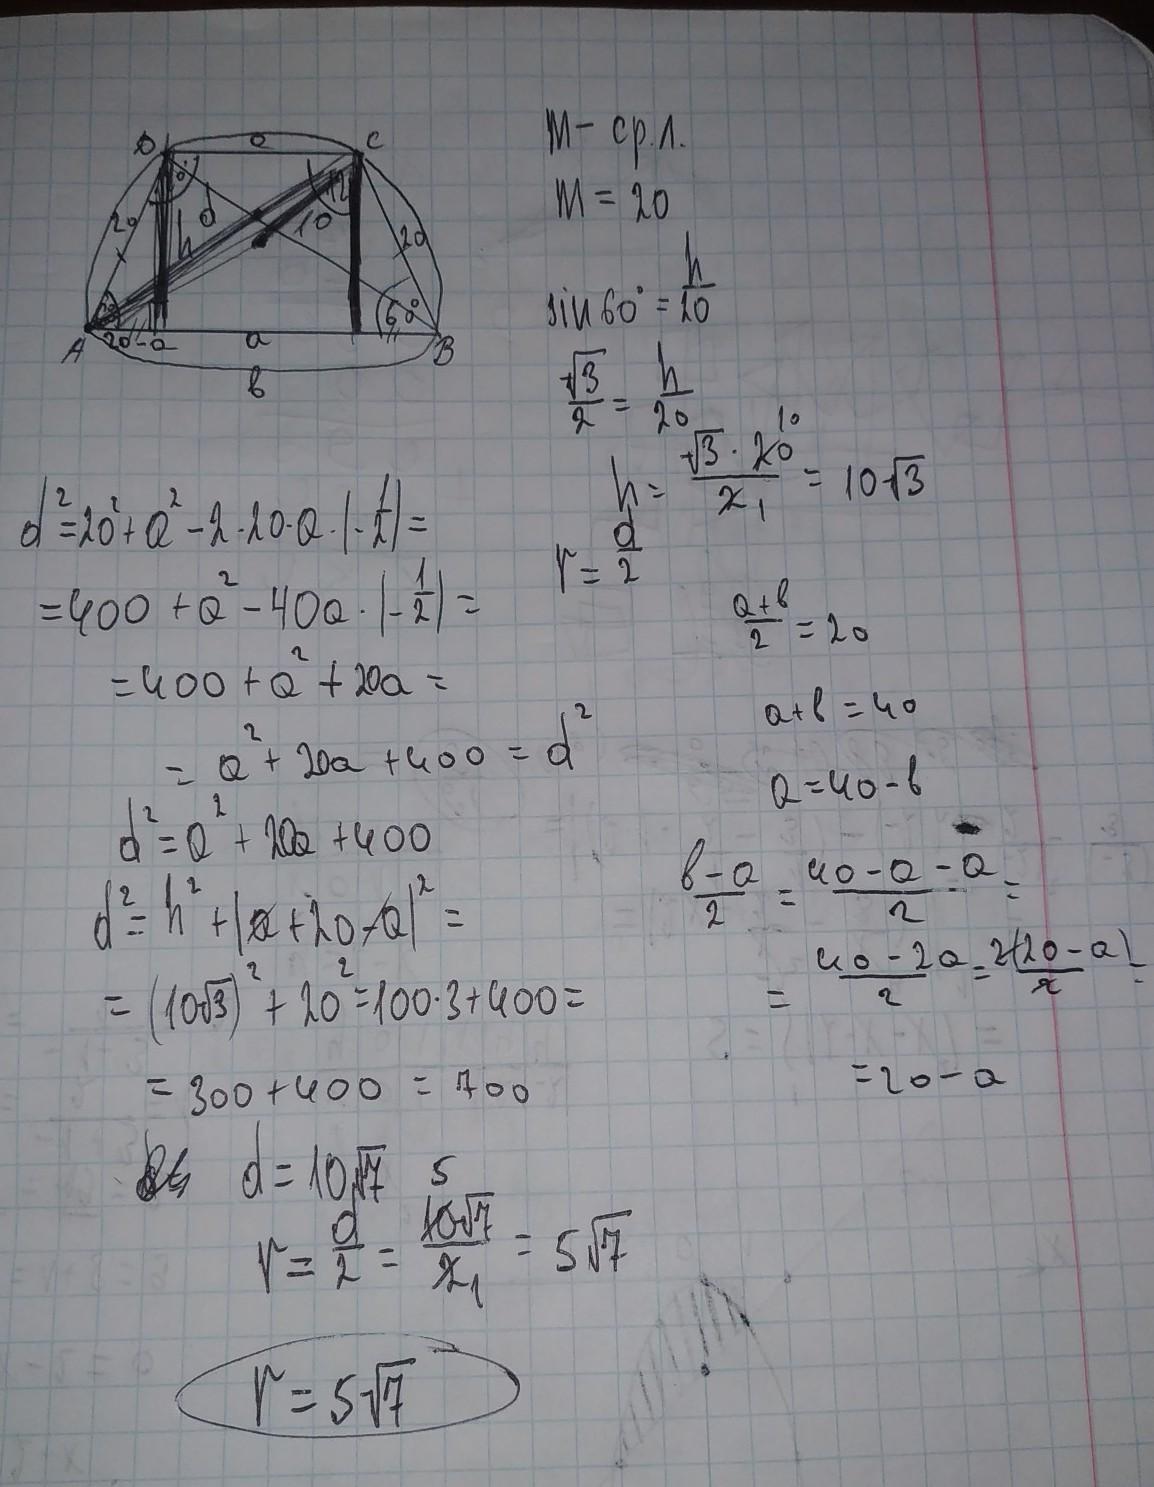 D a C
20 d h 10 20
60°
A 20-a a B
b
m - ср.л.
m = 20
sin 60° = h/20
√3/2 = h/20
h = √3 · 20/2 = 10√3
10
1
r = d/2
d² = 20² + a² - 2·20·a·(-1/2) =
= 400 + a² - 40a·(-1/2) =
= 400 + a² + 20a =
= a² + 20a + 400 = d²
d² = a² + 20a + 400
d² = h² + (a + 20 - a)² =
= (10√3)² + 20² = 100·3 + 400 =
= 300 + 400 = 700
d = 10√7
r = d/2 = 10√7/2 = 5√7
5
1
r = 5√7
a+b/2 = 20
a+b = 40
a = 40 - b
b-a/2 = 40-a-a/2 =
= 40-2a/2 = 2(20-a)/2 =
= 20 - a